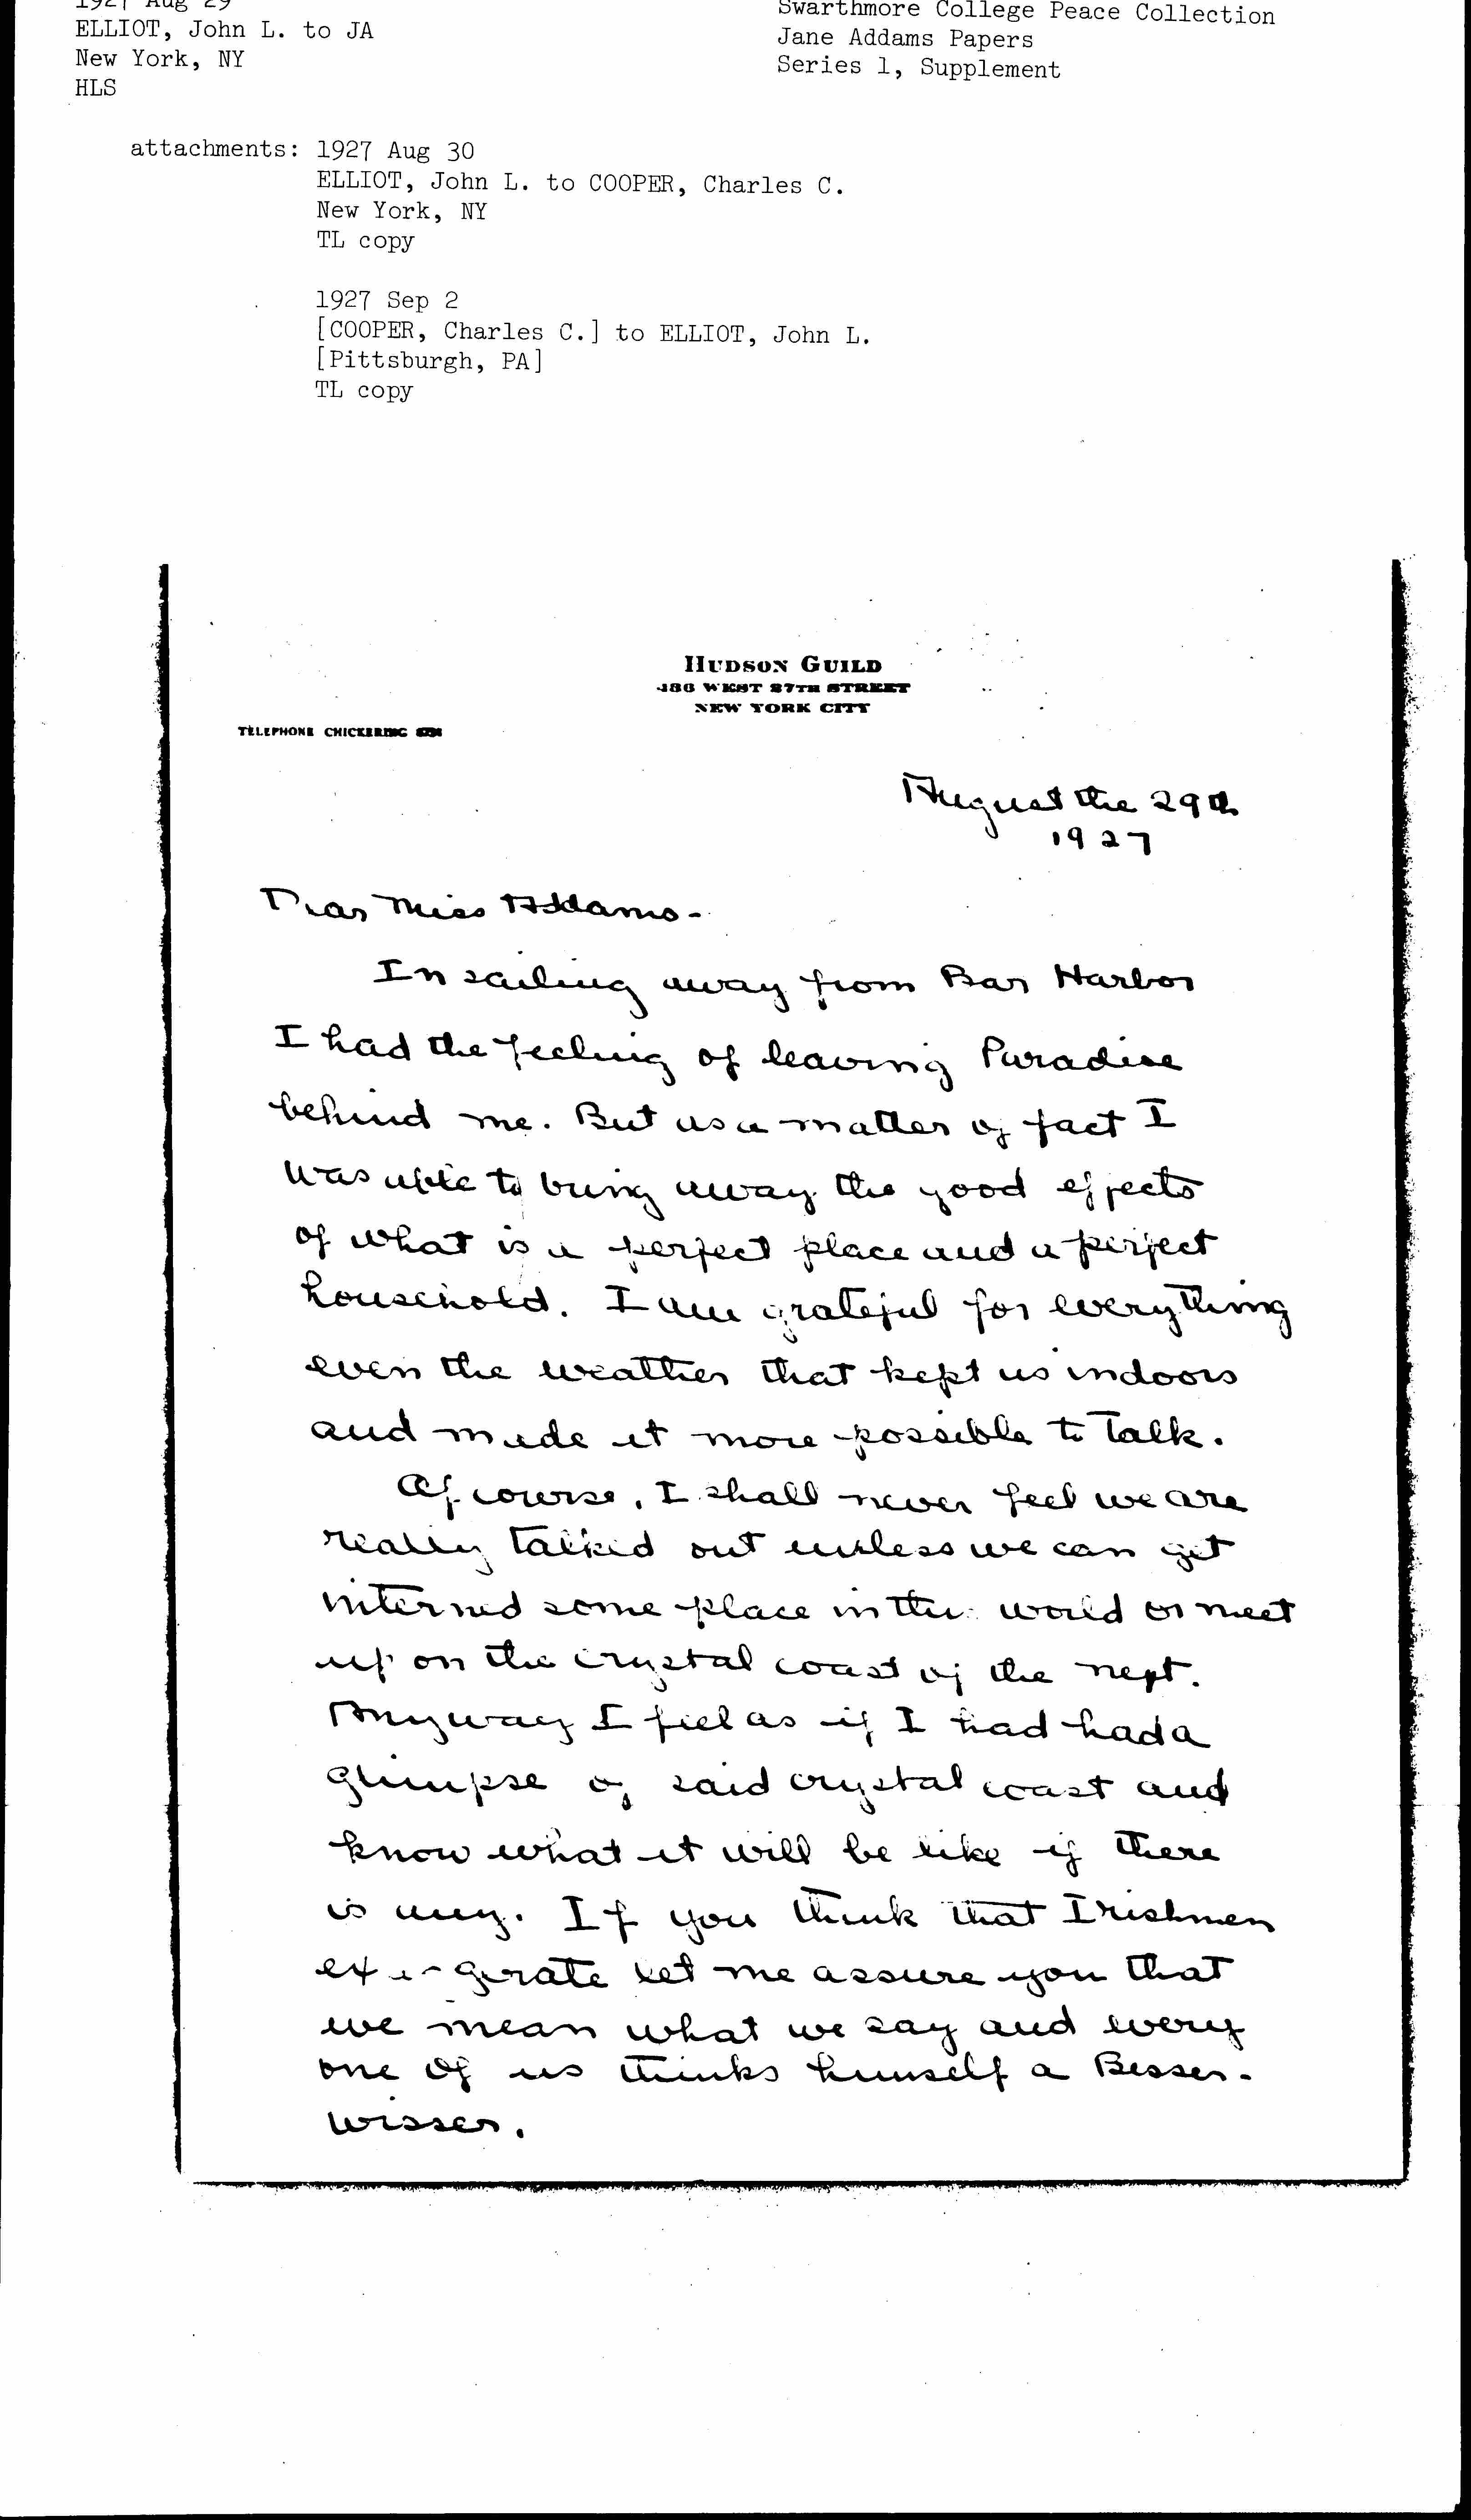 1927 Aug 29
ELLIOT, John L. to JA
New York, NY
HLS
Swarthmore College Peace Collection
Jane Addams Papers
Series 1, Supplement
attachments: 1927 Aug 30
ELLIOT, John L. to COOPER, Charles C.
New York, NY
TL copy
1927 Sep 2
[COOPER, Charles C.] to ELLIOT, John L.
[Pittsburgh, PA]
TL copy
HUDSON GUILD
436 WEST 27TH STREET
NEW YORK CITY
TELEPHONE CHICKERING
August the 29th
1927
Dear Miss Addams-
In sailing away from Bar Harbor
I had the feeling of leaving Paradise
behind me. But as a matter of fact I
was able to bring away the good effects
of what is a perfect place and a perfect
household. I am grateful for everything
even the weather that kept us indoors
and made it more possible to talk.
Of course, I shall never feel we are
really talked out unless we can get
interned some place in this world or meet
up on the crystal coast of the next.
Anyway I feel as if I had had a
glimpse of said crystal coast and
know what it will be like if there
is any. If you think that Irishmen
exagerate let me assure you that
we mean what we say and every
one of us thinks himself a Besser-
wisser.